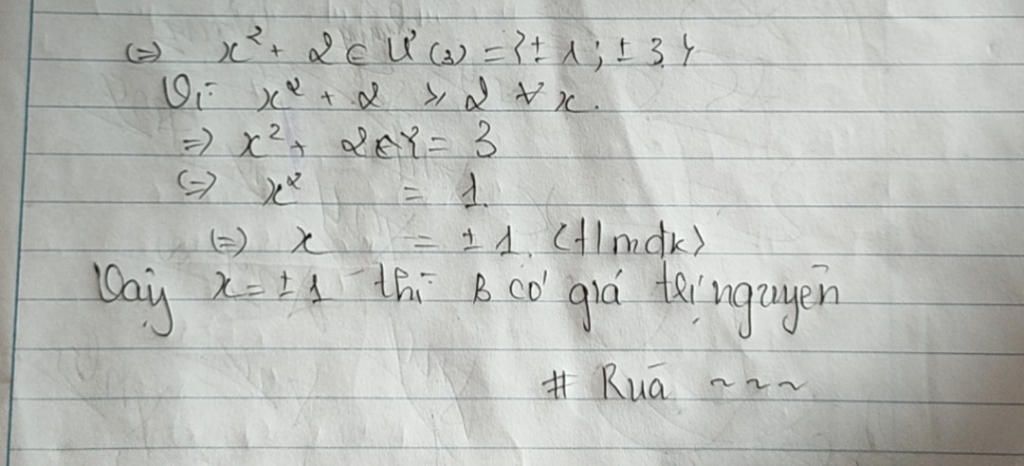 (=) x² + 2 ∈ Ư(3) = {± 1 ; ± 3}
Vì x² + 2 ≥ 2 ∀ x.
=> x² + 2 = 3
(=) x² = 1.
(=) x = ± 1. (t/mđk)
Vậy x = ± 1 thì B có giá trị nguyên
# Rùa ~ ~ ~